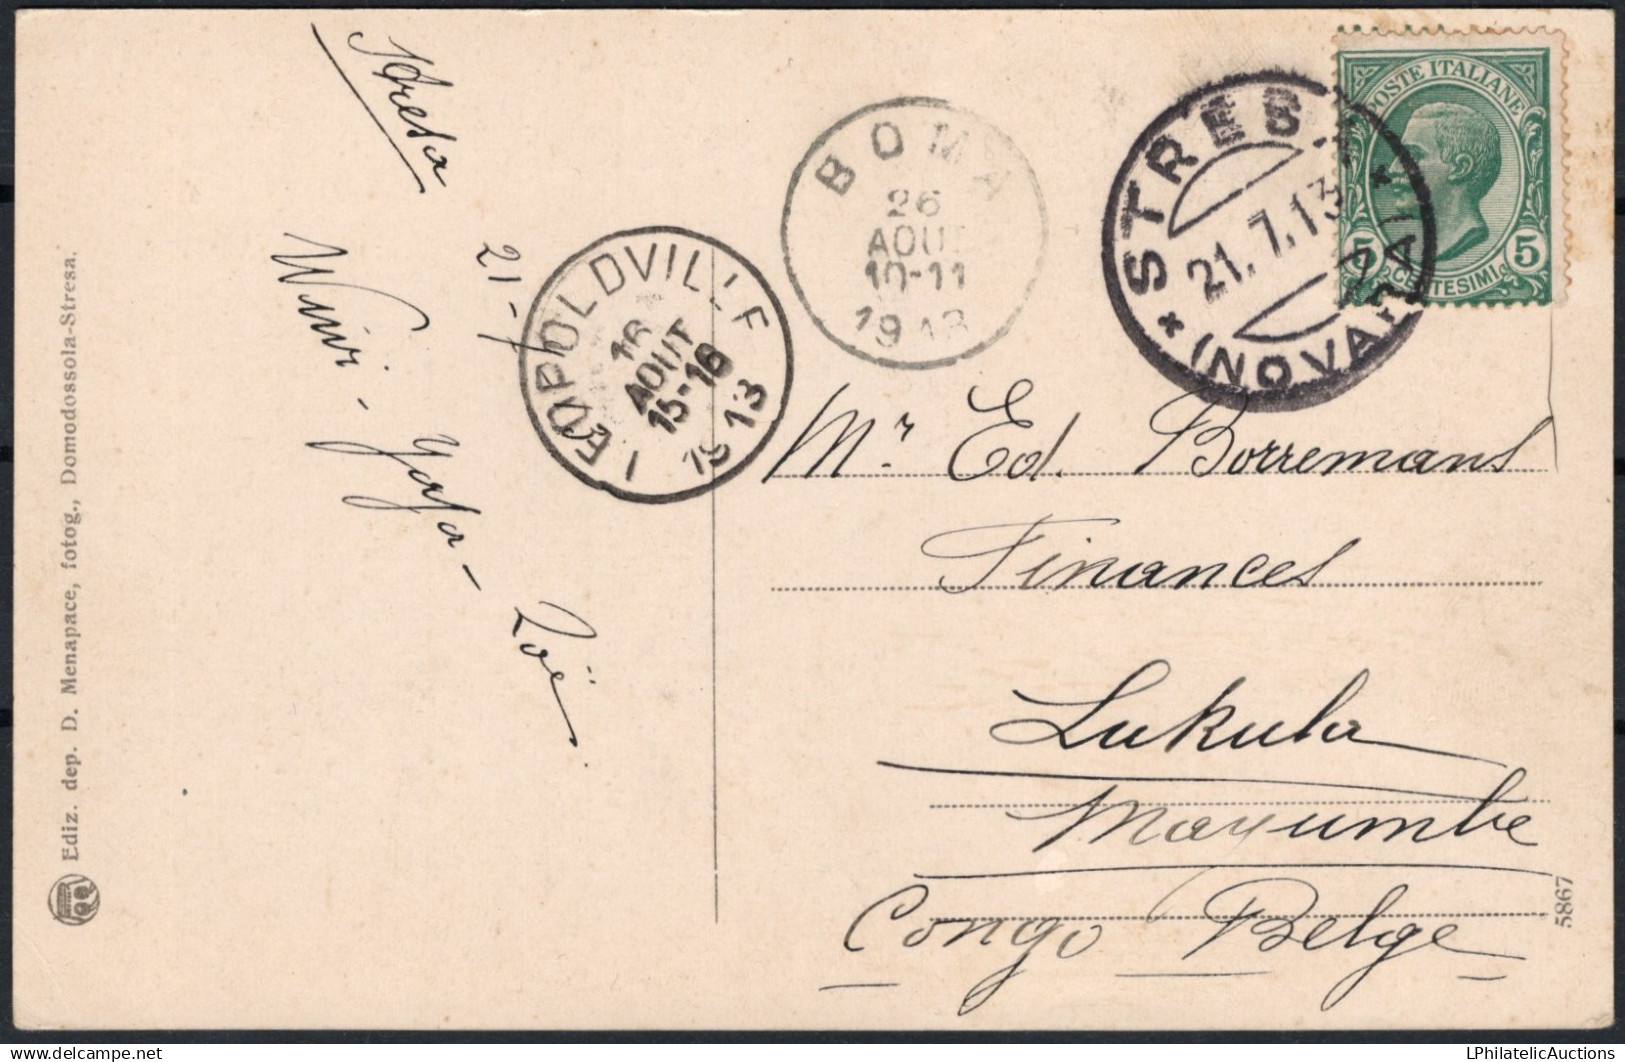 Stresa
21-7
Ediz. dep. D. Menapace, fotog., Domodossola-Stresa.
LEOPOLDVILLE
16
AOUT
15-16
1913
BOMA
26
AOUT
10-11
1913
STRESA
21.7.13
(NOVARA)
POSTE ITALIANE
5 CENTESIMI 5
Mr Ed. Borremans
Finances
Lukula
Mayumbe
Congo Belge
5867
Zoë
LPhilatelicAuctions